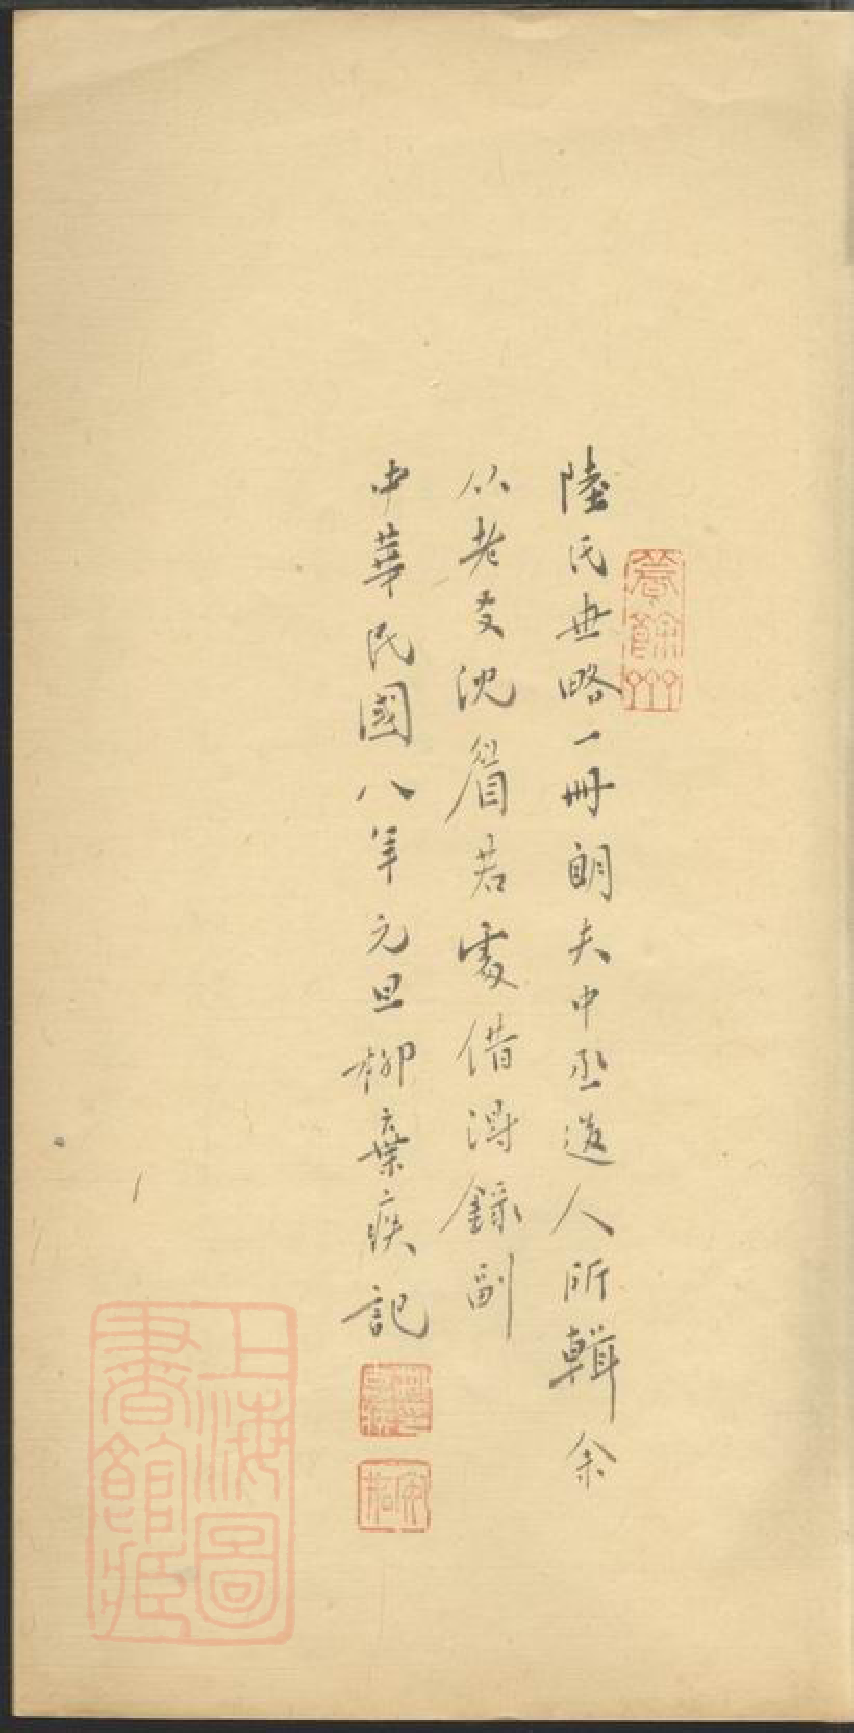 陸氏世略一冊朗夫中丞後人所輯余
从老友沈眉若處借得錄副
中華民國八年元旦柳棄疾記
上海圖書館藏